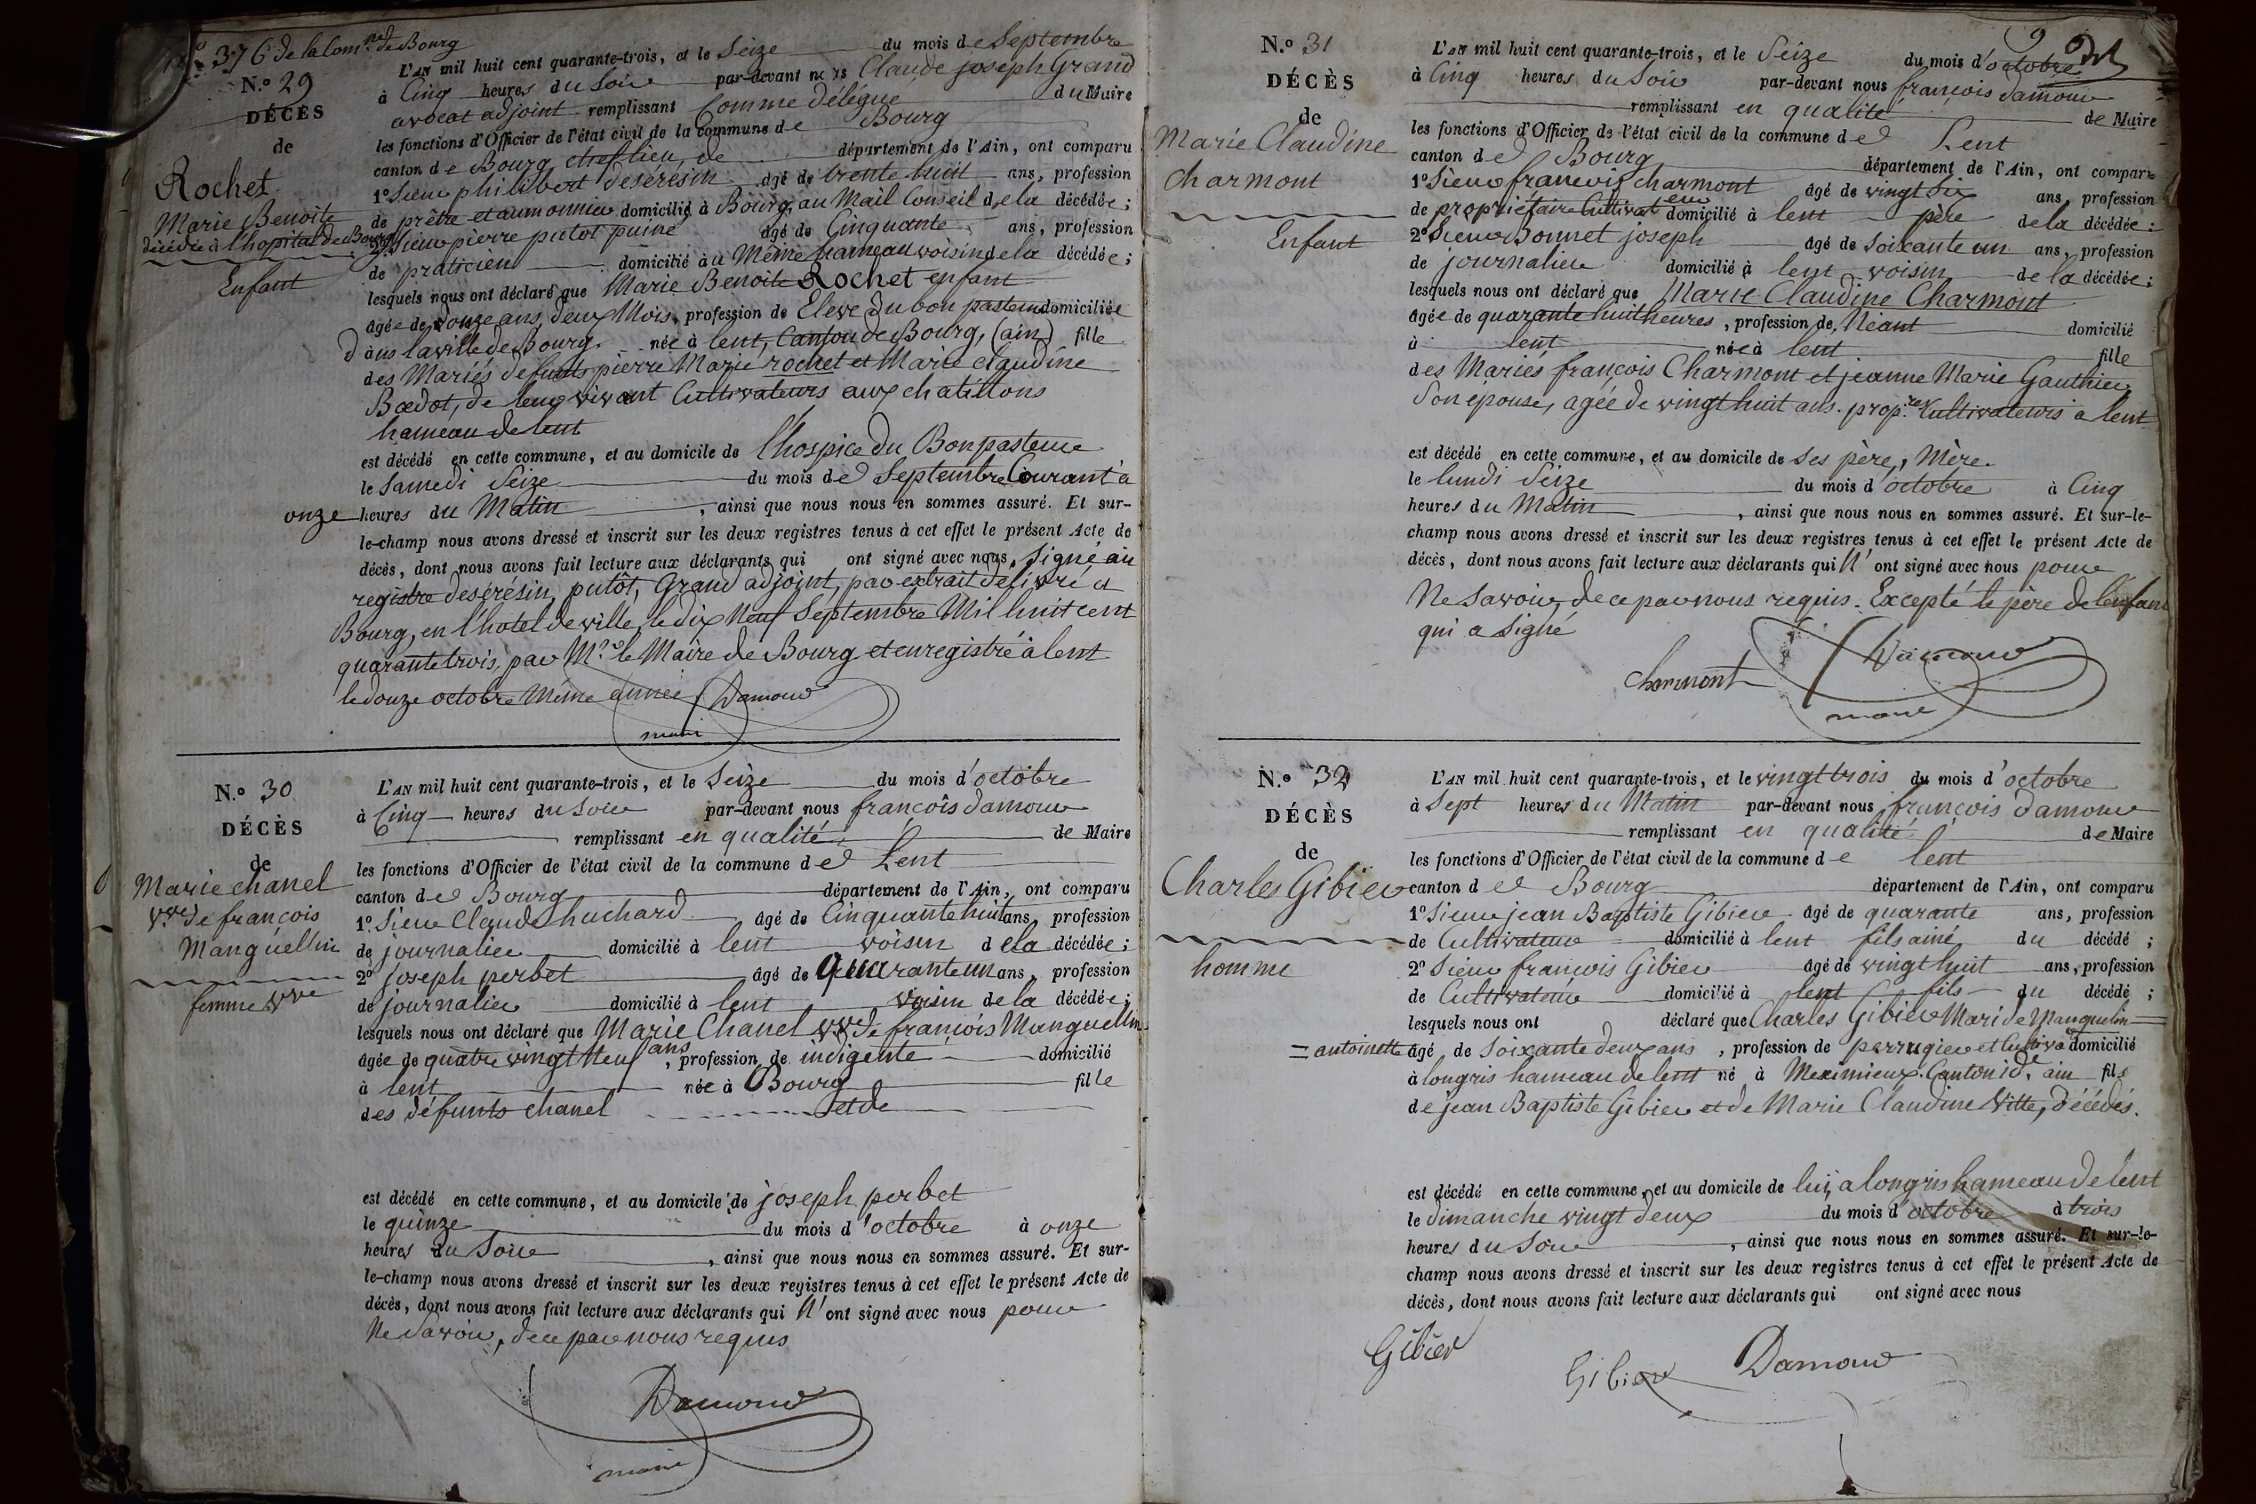 N.o 376 de la Com.ne de Bourg
N.o 29
DÉCÈS
de
Rochet
Marie Benoite
décédée à l'hopital de Bourg
Enfant
L'AN mil huit cent quarante-trois, et le Seize du mois de Septembre
à Cinq heures du Soir par-devant nous Claude joseph Grand
avocat adjoint remplissant Comme délégué du Maire
les fonctions d'Officier de l'état civil de la Commune de Bourg
canton de Bourg, chef lieu, de département de l'Ain, ont comparu
1º Sieur philibert desérésin âgé de trente huit ans, profession
de prêtre et aumonier domicilié à Bourg, au Mail Conseil de la décédée;
2º Sieur pierre putot puiné âgé de Cinquante ans, profession
de praticien domicilié au Même hameau voisin de la décédée;
lesquels nous ont déclaré que Marie Benoite Rochet enfant
âgée de douze ans, deux Mois, profession de Eleve du bon pasteur domiciliée
dans la ville de Bourg. née à lent, Canton de Bourg, (ain) fille
des Mariés defunts pierre Marie rochet et Marie claudine
Bœdot, de leur vivant Cultivateurs aux chatillons
hameau de lent
est décédé en cette commune, et au domicile de l'hospice du Bon pasteur
le Samedi Seize du mois de Septembre Courant à
onze heures du Matin, ainsi que nous nous en sommes assuré. Et sur-
le-champ nous avons dressé et inscrit sur les deux registres tenus à cet effet le présent Acte de
décès, dont nous avons fait lecture aux déclarants qui ont signé avec nous, Signé au
registre desérésin, putôt, Grand adjoint, par extrait délivré à
Bourg, en l'hotel de ville, le dix Neuf Septembre Mil huit cent
quarante trois, par Mr le Maire de Bourg et enregistré à lent
le douze octobre Même année Damour
maire
N.o 30
DÉCÈS
de
Marie chanel
Vve de françois
Manguellin
femme vve
L'AN mil huit cent quarante-trois, et le Seize du mois d'octobre
à Cinq heures du Soir par-devant nous françois damour
remplissant en qualité de Maire
les fonctions d'Officier de l'état civil de la commune de Lent
canton de Bourg département de l'Ain, ont comparu
1º Sieur Claude huchard âgé de Cinquante huit ans, profession
de journalier domicilié à lent voisin de la décédée;
2º joseph perbet âgé de quarante un ans, profession
de journalier domicilié à lent voisin de la décédée;
lesquels nous ont déclaré que Marie Chanel vve de françois Manguellin
âgée de quatre vingt Neuf ans, profession de indigente domicilié
à lent née à Bourg fille
des défunts chanel et de
est décédé en cette commune, et au domicile de joseph perbet
le quinze du mois d'octobre à onze
heures du Soir, ainsi que nous nous en sommes assuré. Et sur-
le-champ nous avons dressé et inscrit sur les deux registres tenus à cet effet le présent Acte de
décès, dont nous avons fait lecture aux déclarants qui N'ont signé avec nous pour
Ne Savoir, de ce par nous requis
Damour
maire
9
N.o 31
DÉCÈS
de
Marie Claudine
charmont
Enfant
L'AN mil huit cent quarante-trois, et le Seize du mois d'octobre
à Cinq heures du Soir par-devant nous françois damour
remplissant en qualité de Maire
les fonctions d'Officier de l'état civil de la commune de Lent
canton de Bourg département de l'Ain, ont comparu
1º Sieur francois charmont âgé de vingt six ans, profession
de propriétaire Cultivateur domicilié à lent père de la décédée;
2º Sieur Bonnet joseph âgé de Soixante un ans, profession
de journalier domicilié à lent voisin de la décédée;
lesquels nous ont déclaré que Marie Claudine Charmont
âgée de quarante huit heures, profession de Néant domicilié
à lent née à lent fille
des Mariés françois Charmont et jeanne Marie Gauthier
Son épouse, agée de vingt huit ans. prop.res Cultivateurs à lent
est décédé en cette commune, et au domicile de Ses père, Mère.
le lundi Seize du mois d'octobre à Cinq
heures du Matin, ainsi que nous nous en sommes assuré. Et sur-le-
champ nous avons dressé et inscrit sur les deux registres tenus à cet effet le présent Acte de
décès, dont nous avons fait lecture aux déclarants qui N'ont signé avec nous pour
Ne Savoir, de ce par nous requis. Excepté le père de l'enfant
qui a Signé
Charmont Damour
maire
N.o 32
DÉCÈS
de
Charles Gibier
homme
L'AN mil huit cent quarante-trois, et le vingt trois du mois d'octobre
à Sept heures du Matin par-devant nous françois damour
remplissant en qualité de Maire
les fonctions d'Officier de l'état civil de la commune de lent
canton de Bourg département de l'Ain, ont comparu
1º Sieur jean Baptiste Gibier âgé de quarante ans, profession
de Cultivateur domicilié à lent fils ainé du décédé;
2º Sieur francois Gibier âgé de vingt huit ans, profession
de Cultivateur domicilié à lent fils du décédé;
lesquels nous ont déclaré que Charles Gibier Mari de Manguelin =
= antoinette âgé de Soixante deux ans, profession de perruquier et Cultivr domicilié
à longris hameau de lent né à Meximieux. Canton id. de ain fils
de jean Baptiste Gibier et de Marie Claudine Vitte, décédés.
est décédé en cette commune, et au domicile de lui, a longris hameau de lent
le dimanche vingt deux du mois d'octobre à trois
heures du Soir, ainsi que nous nous en sommes assuré. Et sur-le-
champ nous avons dressé et inscrit sur les deux registres tenus à cet effet le présent Acte de
décès, dont nous avons fait lecture aux déclarants qui ont signé avec nous
Gibier Gibier Damour